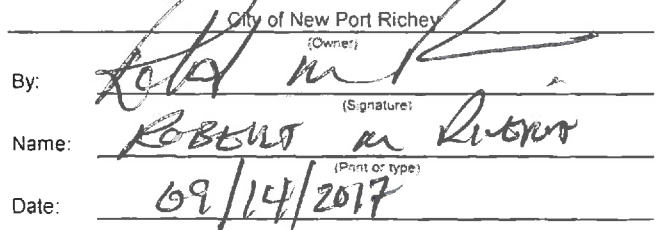 City of New Port Richey
(Owner)
By:
(Signature)
Name: ROBERT M RIVERA
(Print or type)
Date: 09/14/2017